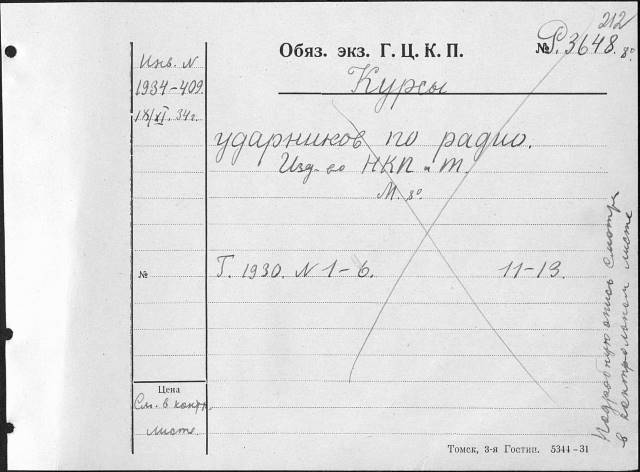 212
Обяз. экз. Г. Ц. К. П.
№ Р.3648. 8°
Инв. N
1934-409.
IX/XI. 34г.
Курсы
ударников по радио.
Изд-во НКП и Т.
М. 8°
№
Г. 1930. N 1-6. 11-13.
Цена
См. в контр.
листе.
Подробную опись смотри
в контрольном листе
Томск, 3-я Гостип. 5344-31